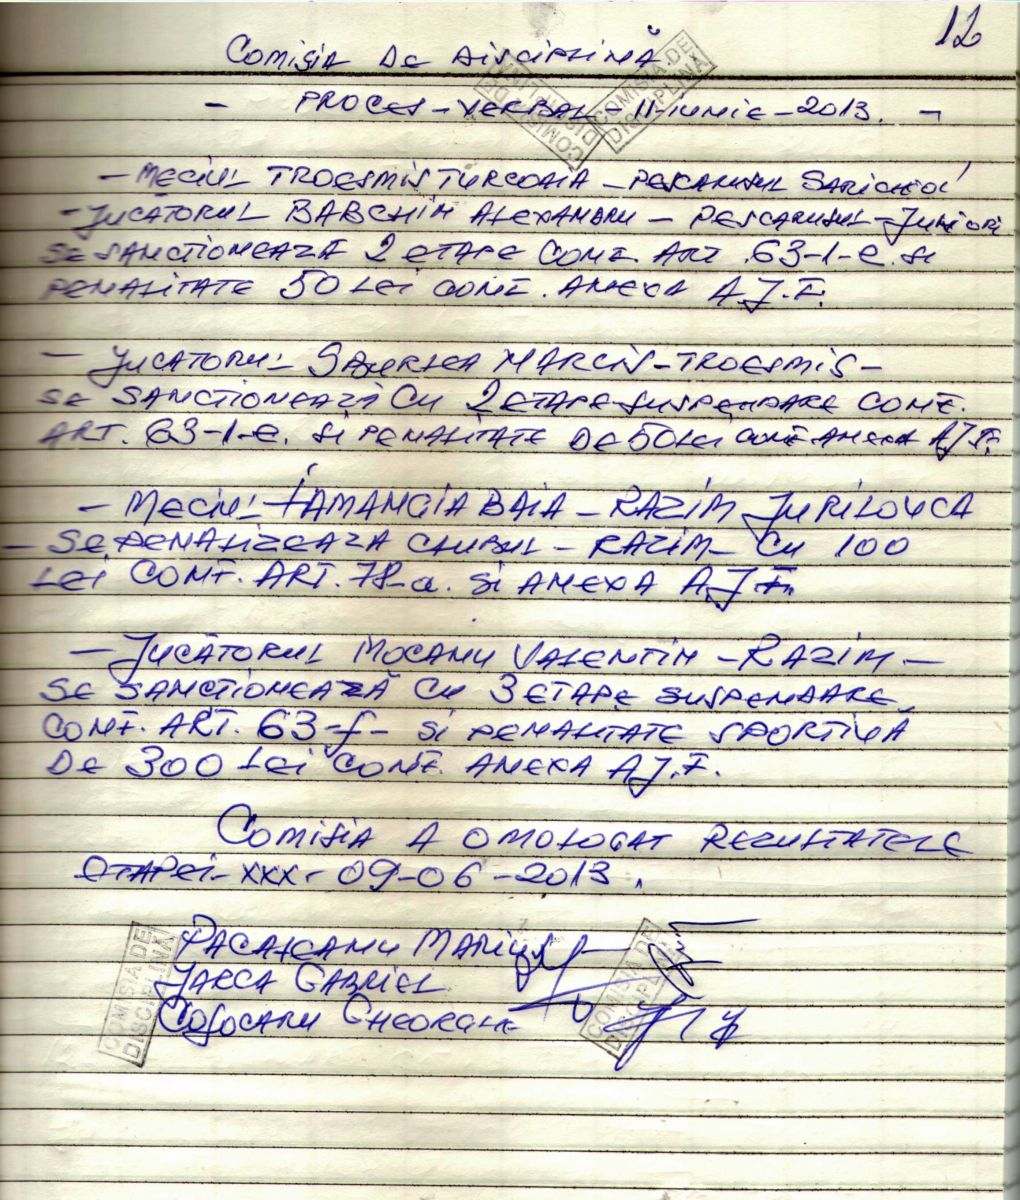 12
Comisia De Disciplină
- PROCES-VERBAL - 11-iunie-2013. -
- Meciul TROESMIS TURCOAIA - PESCARUSUL SARICHIOI
- Jucătorul BABCHIN ALEXANDRU - PESCARUSUL - Juniori
se sanctioneaza 2 etape conf. Art. 63-1-e. si
penalitate 50 Lei conf. Anexa A.J.F.
- Jucatorul MARCIS - TROESMIS -
se sanctionează Cu 2 etape suspendare conf.
ART. 63-1-e. si penalitate De 50 Lei conf anexa A.J.F.
- Meciul HAMANGIA BAIA - RAZIM JURILOVCA
- Se penalizeaza clubul - RAZIM - Cu 100
Lei CONF. ART. 78-a. si ANEXA A.J.F.
- Jucătorul MOCANU VALENTIN - RAZIM -
se sanctionează Cu 3 etape suspendare
CONF. ART. 63-f- si penalitate sportivă
De 300 Lei conf. Anexa A.J.F.
Comisia A omologat rezultatele
etapei - XXX - 09-06-2013.
Marius
Jarca Gabriel
Cojocaru Gheorghe
COMISIA DE
DISCIPLINĂ
COMISIA DE
DISCIPLINĂ
COMISIA DE
DISCIPLINĂ
COMISIA DE
DISCIPLINĂ